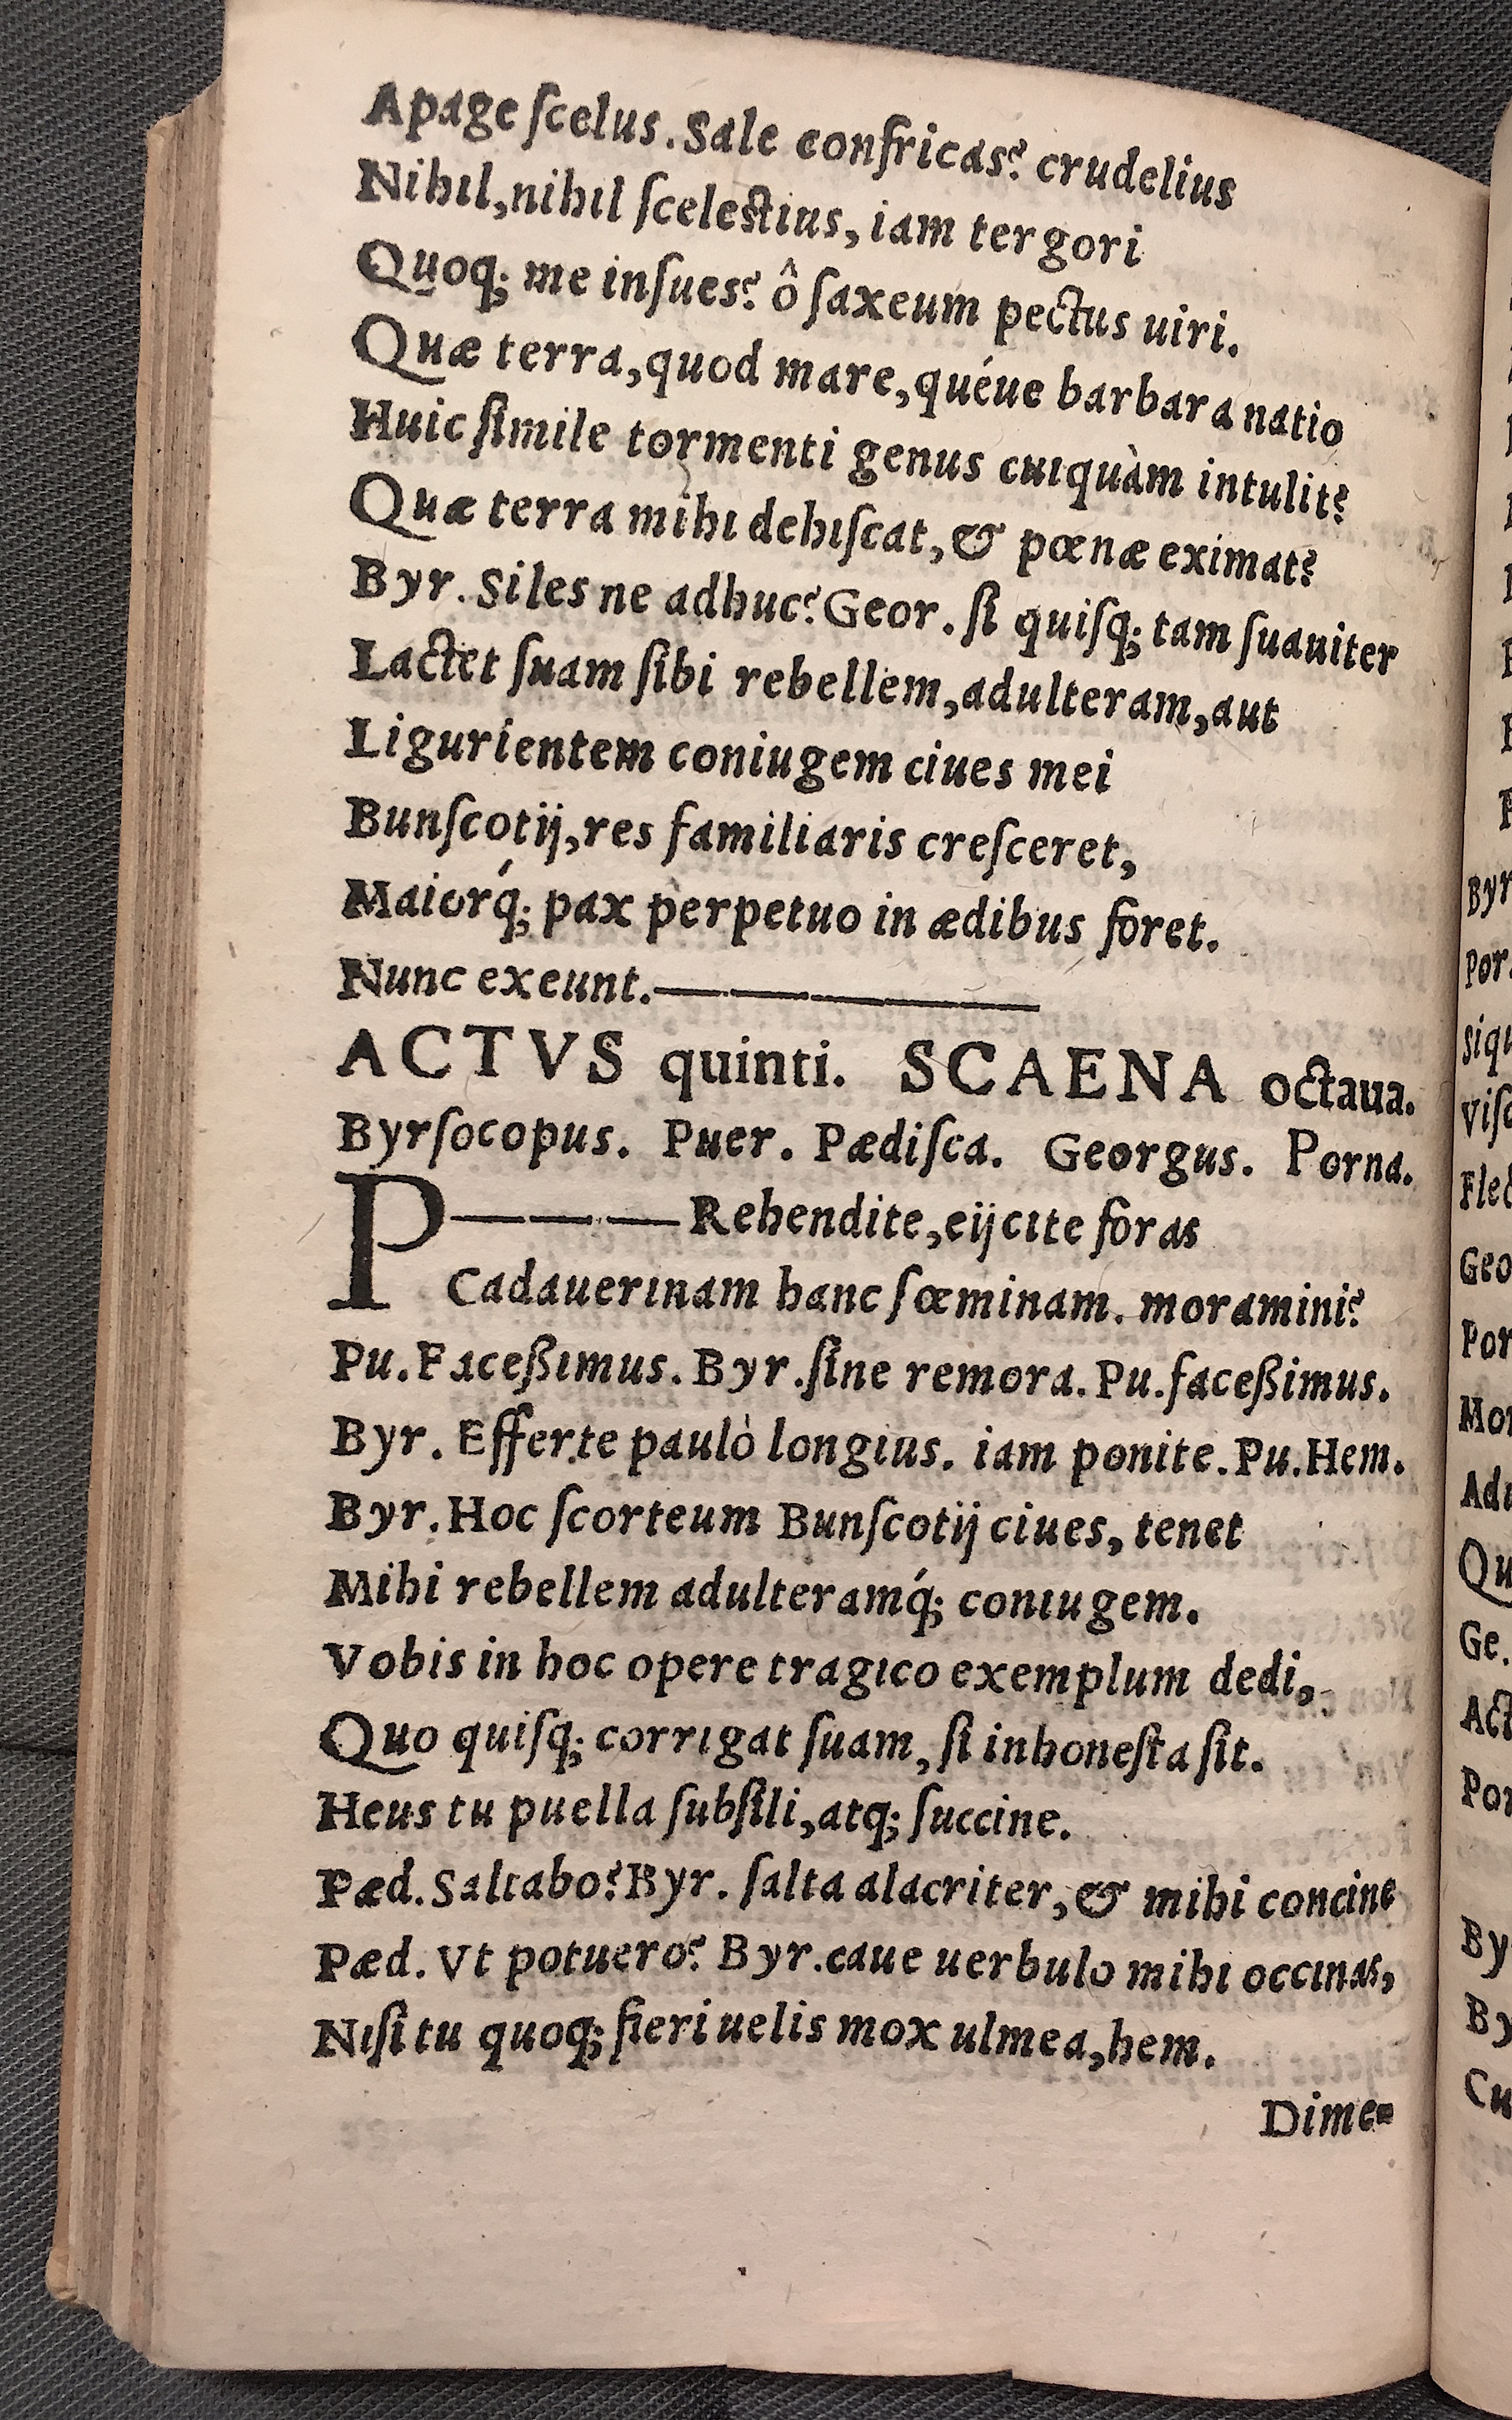 Apage ſcelus. Sale confricas? crudelius
Nihil, nihil ſceleſtius, iam tergori
Quoq; me inſues? ô ſaxeum pectus uiri.
Quæ terra, quod mare, quéue barbara natio
Huic ſimile tormenti genus cuiquàm intulit?
Quæ terra mihi dehiſcat, & pœnæ eximat?
Byr. Siles ne adhuc? Geor. ſi quiſq; tam ſuauiter
Lactet ſuam ſibi rebellem, adulteram, aut
Ligurientem coniugem ciues mei
Bunſcotij, res familiaris creſceret,
Maiorq́; pax perpetuo in ædibus foret.
Nunc exeunt.———
ACTVS quinti. SCAENA octaua.
Byrſocopus. Puer. Pædiſca. Georgus. Porna.
P———Rehendite, eijcite foras
Cadauerinam hanc fœminam. moramini?
Pu. Faceßimus. Byr. ſine remora. Pu. faceßimus.
Byr. Efferte paulò longius. iam ponite. Pu. Hem.
Byr. Hoc ſcorteum Bunſcotij ciues, tenet
Mihi rebellem adulteramq́; coniugem.
Vobis in hoc opere tragico exemplum dedi,
Quo quiſq; corrigat ſuam, ſi inhoneſta ſit.
Heus tu puella ſubſili, atq; ſuccine.
Pæd. Saltabo? Byr. ſalta alacriter, & mihi concine
Pæd. Vt potuero? Byr. caue uerbulo mihi occinas,
Niſi tu quoq; fieri uelis mox ulmea, hem.
Dime-
Byr
Por.
Siqu
Viſc
Geo
Por
Mor
Qu
Ge.
Act
Por
By
By
Cu